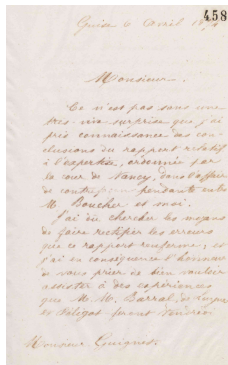 458
Guise le avril 18
Monsieur.
Ce n'est pas sans une
très vive surprise que j'ai
pris connaissance des con-
clusions du rapport relatif
à l'expertise, ordonnée par
la cour de Nancy, dans l'affaire
de contrefaçon pendante entre
M. Boucher et moi.
J'ai dû chercher les moyens
de faire rectifier les erreurs
que ce rapport renferme, et
j'ai en conséquence l'honneur
de vous prier de bien vouloir
assister à des expériences
que M. M. Barral, de Luynes
et Péligot feront Vendredi
Monsieur Guignet